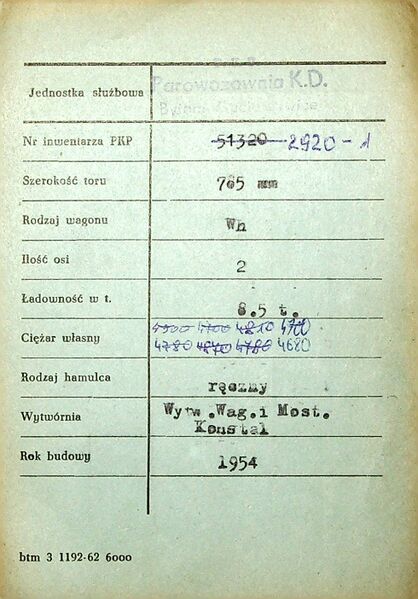 P.K.P.
Parowozownia K.D.
Jednostka służbowa
Nr inwentarza PKP 51320 2920-1
Szerokość toru 785 mm
Rodzaj wagonu Wn
Ilość osi 2
Ładowność w t. 8.5 t.
4810
Ciężar własny 4780 4680
Rodzaj hamulca ręczny
Wytwórnia Wytw.Wag.i Most.
Konstal
Rok budowy 1954
btm 3 1192-62 6000